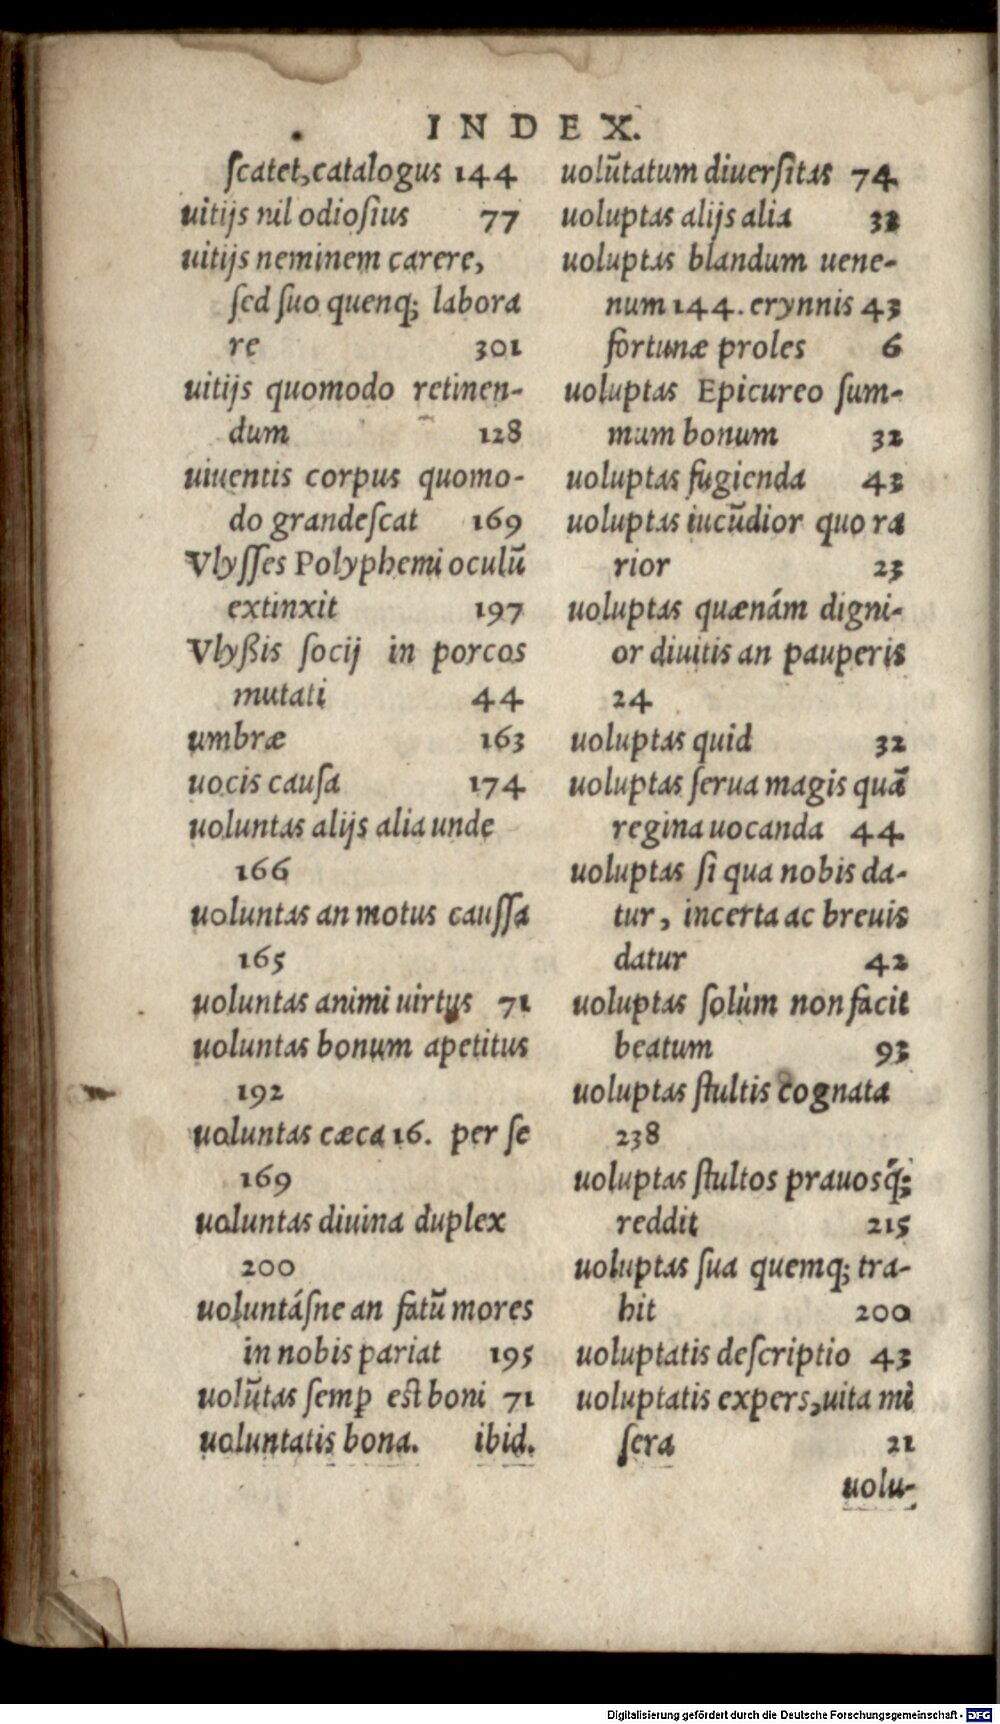 INDEX.
ſcatet, catalogus 144
uitijs nil odioſius 77
uitijs neminem carere,
ſed ſuo quenq; labora
re 301
uitijs quomodo retinen-
dum 128
uiuentis corpus quomo-
do grandeſcat 169
Vlyſſes Polyphemi oculū
extinxit 197
Vlyßis ſocij in porcos
mutati 44
umbræ 163
uocis cauſa 174
uoluntas alijs alia unde
166
uoluntas an motus cauſſa
165
uoluntas animi uirtus 71
uoluntas bonum apetitus
192
uoluntas cæca 16. per ſe
169
uoluntas diuina duplex
200
uoluntáſne an fatū mores
in nobis pariat 195
uolūtas ſemꝑ est boni 71
uoluntatis bona. ibid.
uolūtatum diuerſitas 74
uoluptas alijs alia 32
uoluptas blandum uene-
num 144. erynnis 43
fortunæ proles 6
uoluptas Epicureo ſum-
mum bonum 32
uoluptas fugienda 43
uoluptas iucūdior quo ra
rior 23
uoluptas quænám digni-
or diuitis an pauperis
24
uoluptas quid 32
uoluptas ſerua magis quā
regina uocanda 44
uoluptas ſi qua nobis da-
tur, incerta ac breuis
datur 42
uoluptas ſolùm non facit
beatum 93
uoluptas ſtultis cognata
238
uoluptas ſtultos prauosq́;
reddit 215
uoluptas ſua quemq; tra-
hit 200
uoluptatis deſcriptio 43
uoluptatis expers, uita mi
ſera 21
uolu-
Digitalisierung gefördert durch die Deutsche Forschungsgemeinschaft - DFG